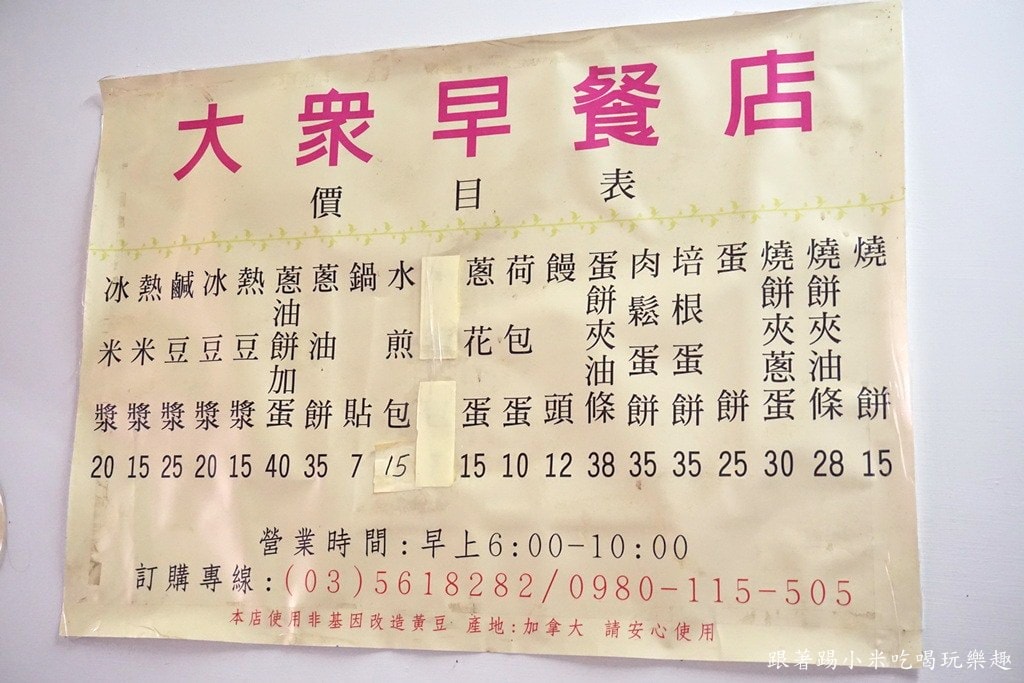 大眾早餐店
價目表
燒餅 15
燒餅夾油條 28
燒餅夾蔥蛋 30
蛋餅 25
培根蛋餅 35
肉鬆蛋餅 35
蛋餅夾油條 38
饅頭 12
荷包蛋 10
蔥花蛋 15
水煎包 15
鍋貼 7
蔥油餅 35
蔥油餅加蛋 40
熱豆漿 15
冰豆漿 20
鹹豆漿 25
熱米漿 15
冰米漿 20
營業時間:早上6:00-10:00
訂購專線:(03)5618282/0980-115-505
本店使用非基因改造黃豆 產地:加拿大 請安心使用
跟著踢小米吃喝玩樂趣